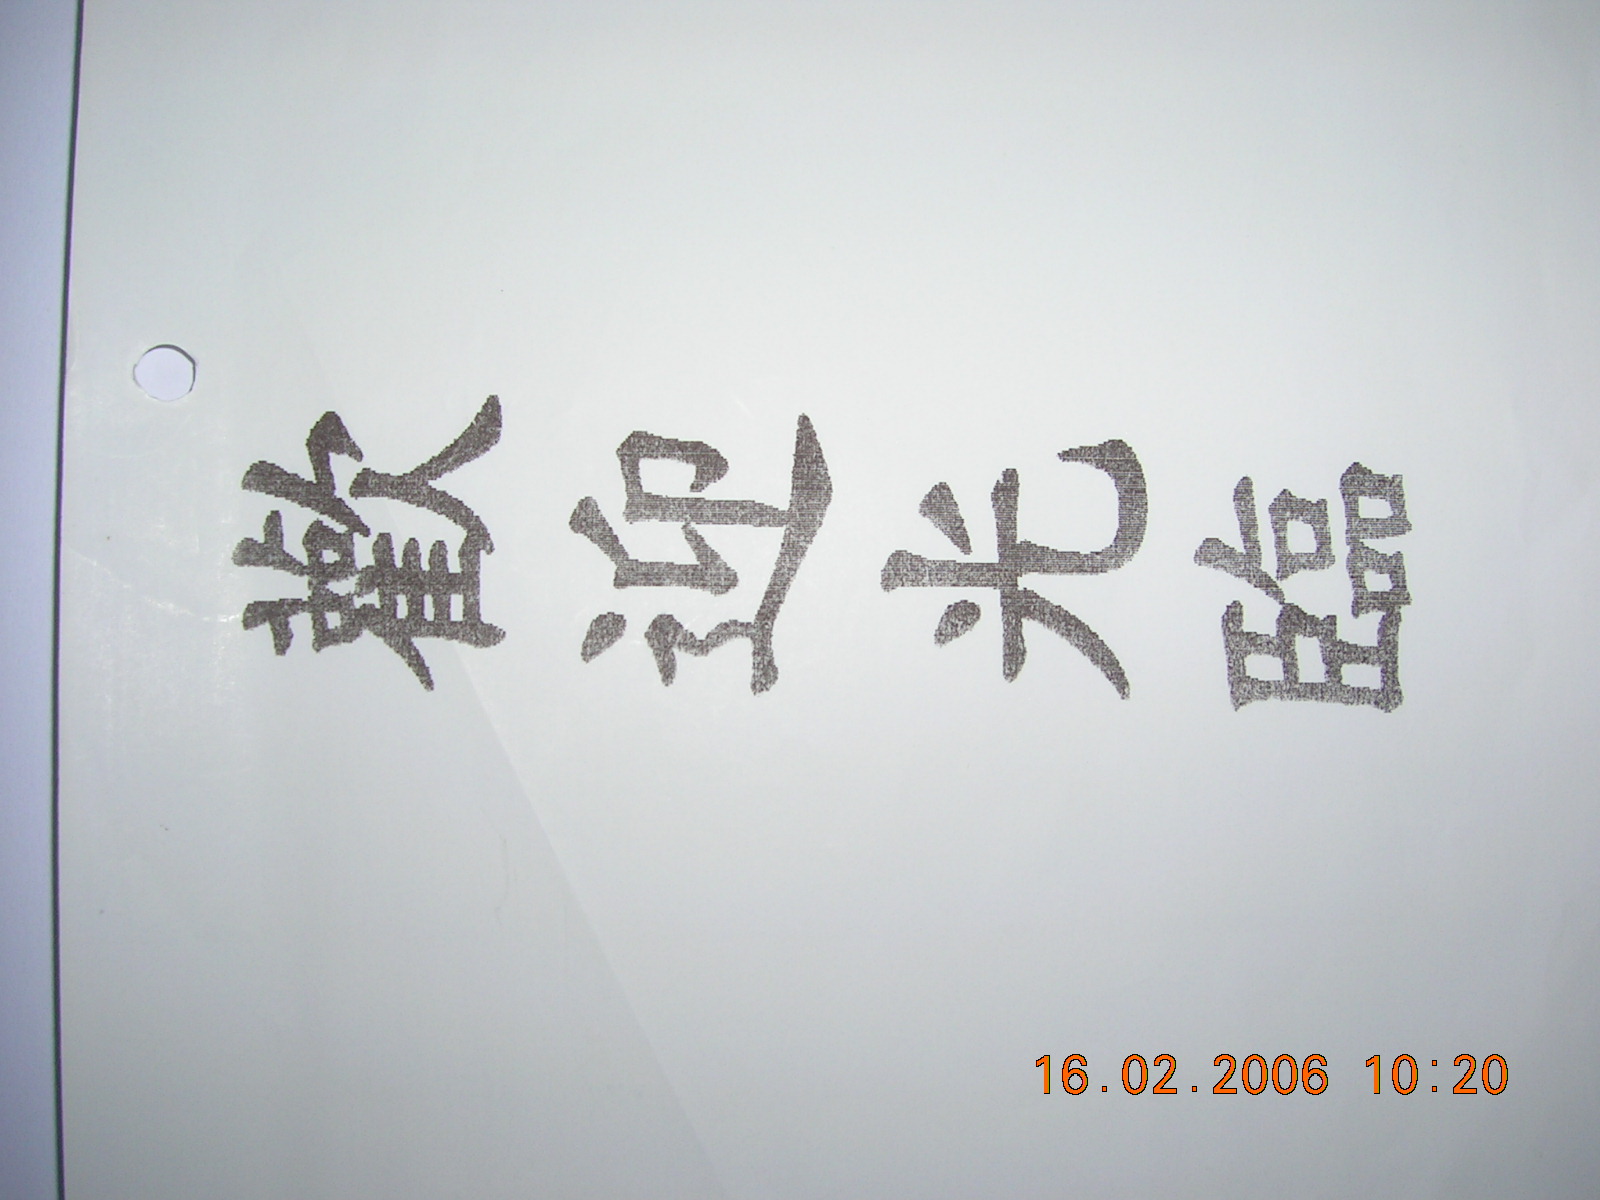 歡迎光臨
16.02.2006 10:20